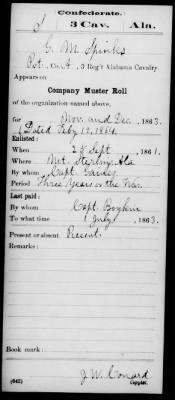 Confederate.
S 3 Cav. Ala.
G. M. Spinks
Pvt., Co. A, 3 Reg't Alabama Cavalry.
Appears on
Company Muster Roll
of the organization named above,
for Nov. and Dec., 1863.
Dated Feby 12, 1864.
Enlisted:
When 24 Sept, 1861.
Where Mt. Sterling Ala
By whom Capt.
Period Three Years or the War.
Last paid:
By whom Capt. Boykin
To what time 1 July, 1863.
Present or absent Present
Remarks:
Book mark:
J. W. Conard
(642) Copyist.